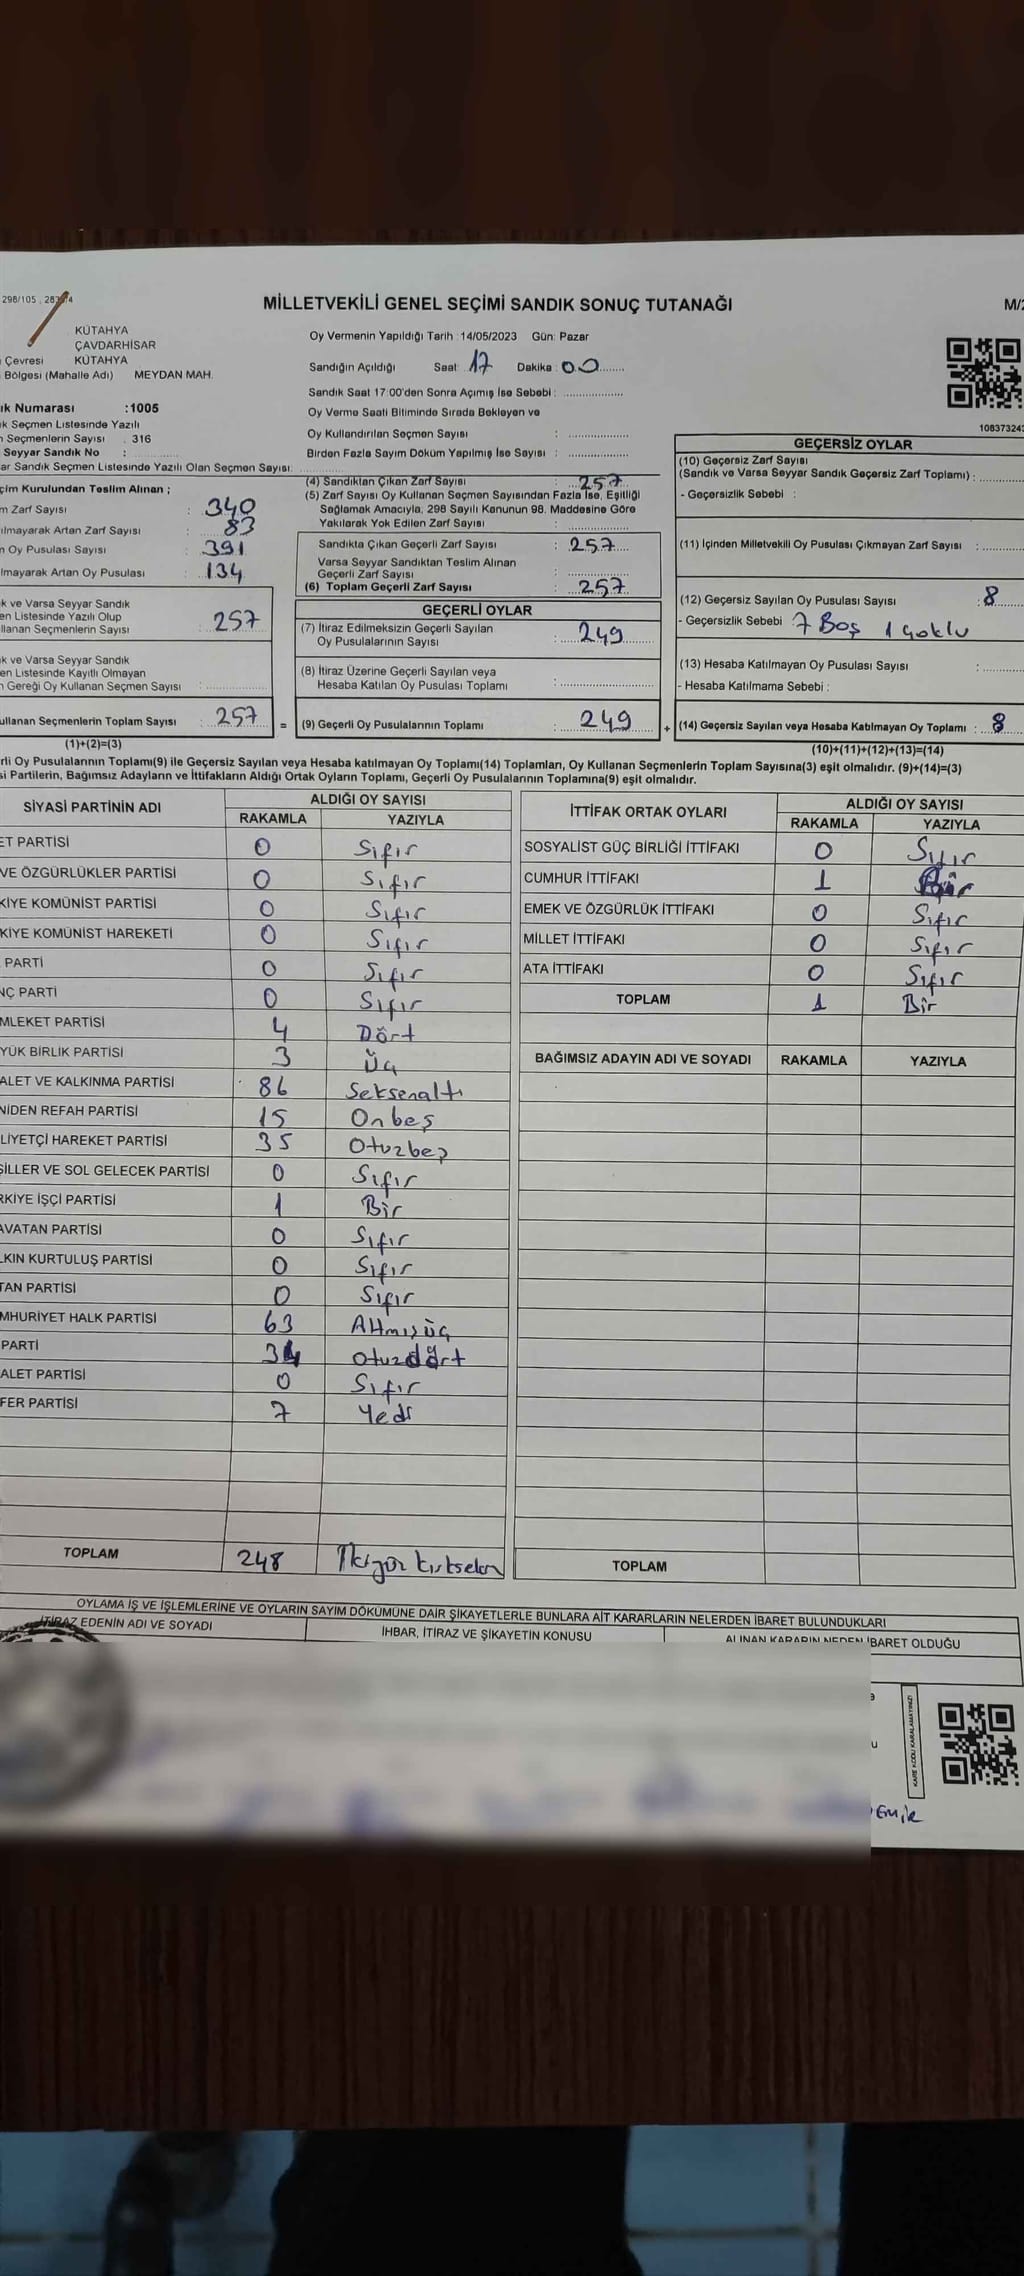 298/105 , 283/4
MİLLETVEKİLİ GENEL SEÇİMİ SANDIK SONUÇ TUTANAĞI
M/2
KÜTAHYA
ÇAVDARHİSAR
Çevresi KÜTAHYA
Bölgesi (Mahalle Adı) MEYDAN MAH.
Oy Vermenin Yapıldığı Tarih :14/05/2023 Gün: Pazar
Sandığın Açıldığı Saat: 17 Dakika : 00
Sandık Saat 17:00'den Sonra Açımış İse Sebebi :
Oy Verme Saati Bitiminde Sırada Bekleyen ve
Oy Kullandırılan Seçmen Sayısı :
Birden Fazla Sayım Döküm Yapılmış İse Sayısı :
108373243
ık Numarası :1005
k Seçmen Listesinde Yazılı
n Seçmenlerin Sayısı : 316
Seyyar Sandık No :
ar Sandık Seçmen Listesinde Yazılı Olan Seçmen Sayısı:
çim Kurulundan Teslim Alınan ;
m Zarf Sayısı : 340
ılmayarak Artan Zarf Sayısı : 83
n Oy Pusulası Sayısı : 391
lmayarak Artan Oy Pusulası : 134
k ve Varsa Seyyar Sandık
en Listesinde Yazılı Olup
llanan Seçmenlerin Sayısı : 257
k ve Varsa Seyyar Sandık
en Listesinde Kayıtlı Olmayan
n Gereği Oy Kullanan Seçmen Sayısı :
ullanan Seçmenlerin Toplam Sayısı : 257 =
(1)+(2)=(3)
(4) Sandıktan Çıkan Zarf Sayısı : 257
(5) Zarf Sayısı Oy Kullanan Seçmen Sayısından Fazla İse, Eşitliği
Sağlamak Amacıyla, 298 Sayılı Kanunun 98. Maddesine Göre
Yakılarak Yok Edilen Zarf Sayısı :
Sandıkta Çıkan Geçerli Zarf Sayısı : 257
Varsa Seyyar Sandıktan Teslim Alınan
Geçerli Zarf Sayısı :
(6) Toplam Geçerli Zarf Sayısı : 257
GEÇERLİ OYLAR
(7) İtiraz Edilmeksizin Geçerli Sayılan
Oy Pusulalarının Sayısı : 249
(8) İtiraz Üzerine Geçerli Sayılan veya
Hesaba Katılan Oy Pusulası Toplamı :
(9) Geçerli Oy Pusulalarının Toplamı : 249 +
GEÇERSİZ OYLAR
(10) Geçersiz Zarf Sayısı
(Sandık ve Varsa Seyyar Sandık Geçersiz Zarf Toplamı) :
- Geçersizlik Sebebi :
(11) İçinden Milletvekili Oy Pusulası Çıkmayan Zarf Sayısı :
(12) Geçersiz Sayılan Oy Pusulası Sayısı : 8
- Geçersizlik Sebebi : 7 Boş 1 çoklu
(13) Hesaba Katılmayan Oy Pusulası Sayısı :
- Hesaba Katılmama Sebebi :
(14) Geçersiz Sayılan veya Hesaba Katılmayan Oy Toplamı : 8
(10)+(11)+(12)+(13)=(14)
rli Oy Pusulalarının Toplamı(9) ile Geçersiz Sayılan veya Hesaba katılmayan Oy Toplamı(14) Toplamları, Oy Kullanan Seçmenlerin Toplam Sayısına(3) eşit olmalıdır. (9)+(14)=(3)
si Partilerin, Bağımsız Adayların ve İttifakların Aldığı Ortak Oyların Toplamı, Geçerli Oy Pusulalarının Toplamına(9) eşit olmalıdır.
SİYASİ PARTİNİN ADI ALDIĞI OY SAYISI
RAKAMLA YAZIYLA
ET PARTİSİ 0 Sıfır
VE ÖZGÜRLÜKLER PARTİSİ 0 Sıfır
KİYE KOMÜNİST PARTİSİ 0 Sıfır
KİYE KOMÜNİST HAREKETİ 0 Sıfır
PARTİ 0 Sıfır
NÇ PARTİ 0 Sıfır
MLEKET PARTİSİ 4 Dört
YÜK BİRLİK PARTİSİ 3 Üç
ALET VE KALKINMA PARTİSİ 86 Seksenaltı
NİDEN REFAH PARTİSİ 15 Onbeş
LİYETÇİ HAREKET PARTİSİ 35 Otuzbeş
ŞİLLER VE SOL GELECEK PARTİSİ 0 Sıfır
RKİYE İŞÇİ PARTİSİ 1 Bir
AVATAN PARTİSİ 0 Sıfır
LKIN KURTULUŞ PARTİSİ 0 Sıfır
TAN PARTİSİ 0 Sıfır
MHURİYET HALK PARTİSİ 63 Altmışüç
PARTİ 34 otuzdört
ALET PARTİSİ 0 Sıfır
FER PARTİSİ 7 Yedi
TOPLAM 248 İkiyüz kırksekiz
İTTİFAK ORTAK OYLARI ALDIĞI OY SAYISI
RAKAMLA YAZIYLA
SOSYALİST GÜÇ BİRLİĞİ İTTİFAKI 0 Sıfır
CUMHUR İTTİFAKI 1 Bir
EMEK VE ÖZGÜRLÜK İTTİFAKI 0 Sıfır
MİLLET İTTİFAKI 0 Sıfır
ATA İTTİFAKI 0 Sıfır
TOPLAM 1 Bir
BAĞIMSIZ ADAYIN ADI VE SOYADI RAKAMLA YAZIYLA
TOPLAM
OYLAMA İŞ VE İŞLEMLERİNE VE OYLARIN SAYIM DÖKÜMÜNE DAİR ŞİKAYETLERLE BUNLARA AİT KARARLARIN NELERDEN İBARET BULUNDUKLARI
İTİRAZ EDENİN ADI VE SOYADI İHBAR, İTİRAZ VE ŞİKAYETİN KONUSU ALINAN KARARIN NEDEN İBARET OLDUĞU
KARE KODU KARALAMAYINIZ!